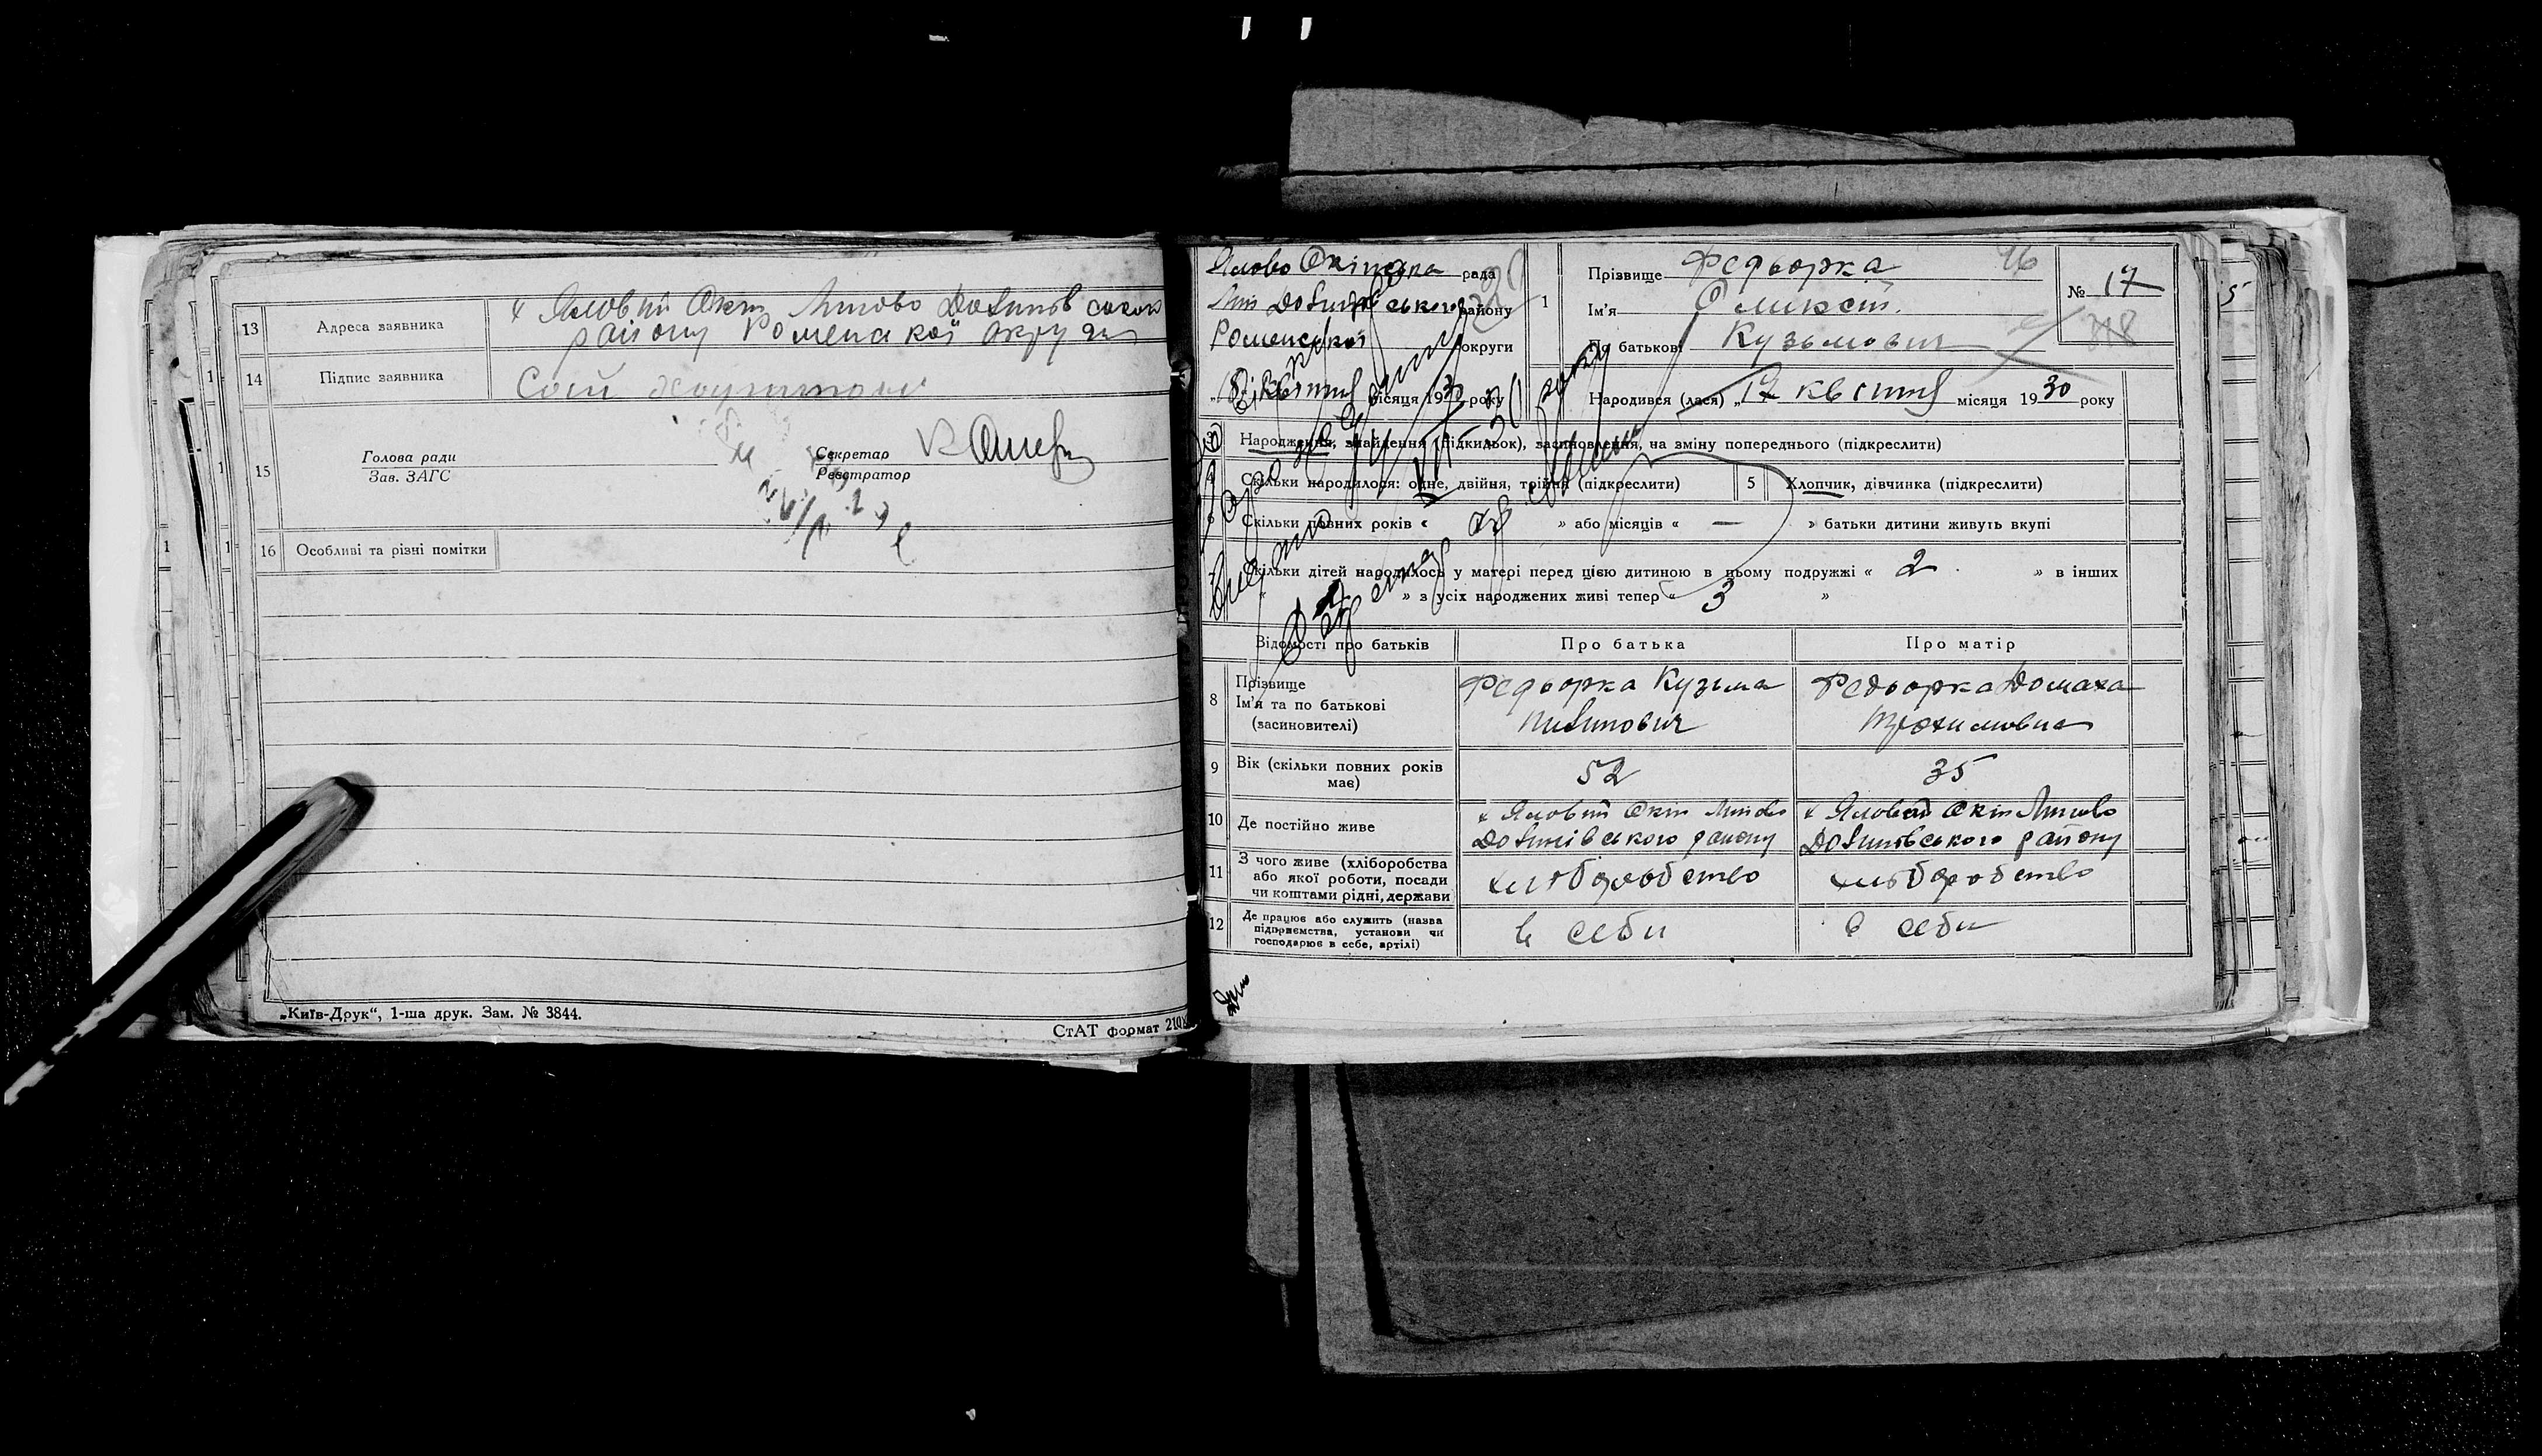 13 Адреса заявника х Яловий Окіп Липово Долинов ського
району Роменської округи
14 Підпис заявника
15 Голова ради
Зав. ЗАГС
Секретар
Реєстратор
16 Особливі та різні помітки
„Київ-Друк“, 1-ша друк. Зам. № 3844.
СтАТ формат 210
Ялово Окіпська рада
Лип Долинського району
Роменської округи
18 квітня місяця 1930 року
1 Прізвище Федьорка 96
Ім'я Оликсій
По батькові Кузьмович
№ 17
Народився (лася) „17 квітня місяця 1930 року
Народження, знайдення (підкильок), засиновлення, на зміну попереднього (підкреслити)
Скільки народилося: одне, двійня, трійня (підкреслити) 5 Хлопчик, дівчинка (підкреслити)
Скільки повних років « » або місяців « — » батьки дитини живуть вкупі
Скільки дітей народилось у матері перед цією дитиною в цьому подружжі « 2 » в інших
« » з усіх народжених живі тепер « 3 »
Відомості про батьків Про батька Про матір
8 Прізвище
Ім'я та по батькові
(засиновителі)
Федьорка Кузьма
Пилипович
Федьорка Домаха
Трохимовна
9 Вік (скільки повних років
має)
52 35
10 Де постійно живе
х Яловий Окіп Липово
Долинівського району
х Яловий Окіп Липово
Долинівського району
11 З чого живе (хліборобства
або якої роботи, посади
чи коштами рідні, держави
хліборобство хліборобство
12 Де працює або служить (назва
підприємства, установи чи
господарює в себе, артілі)
в себи в себи